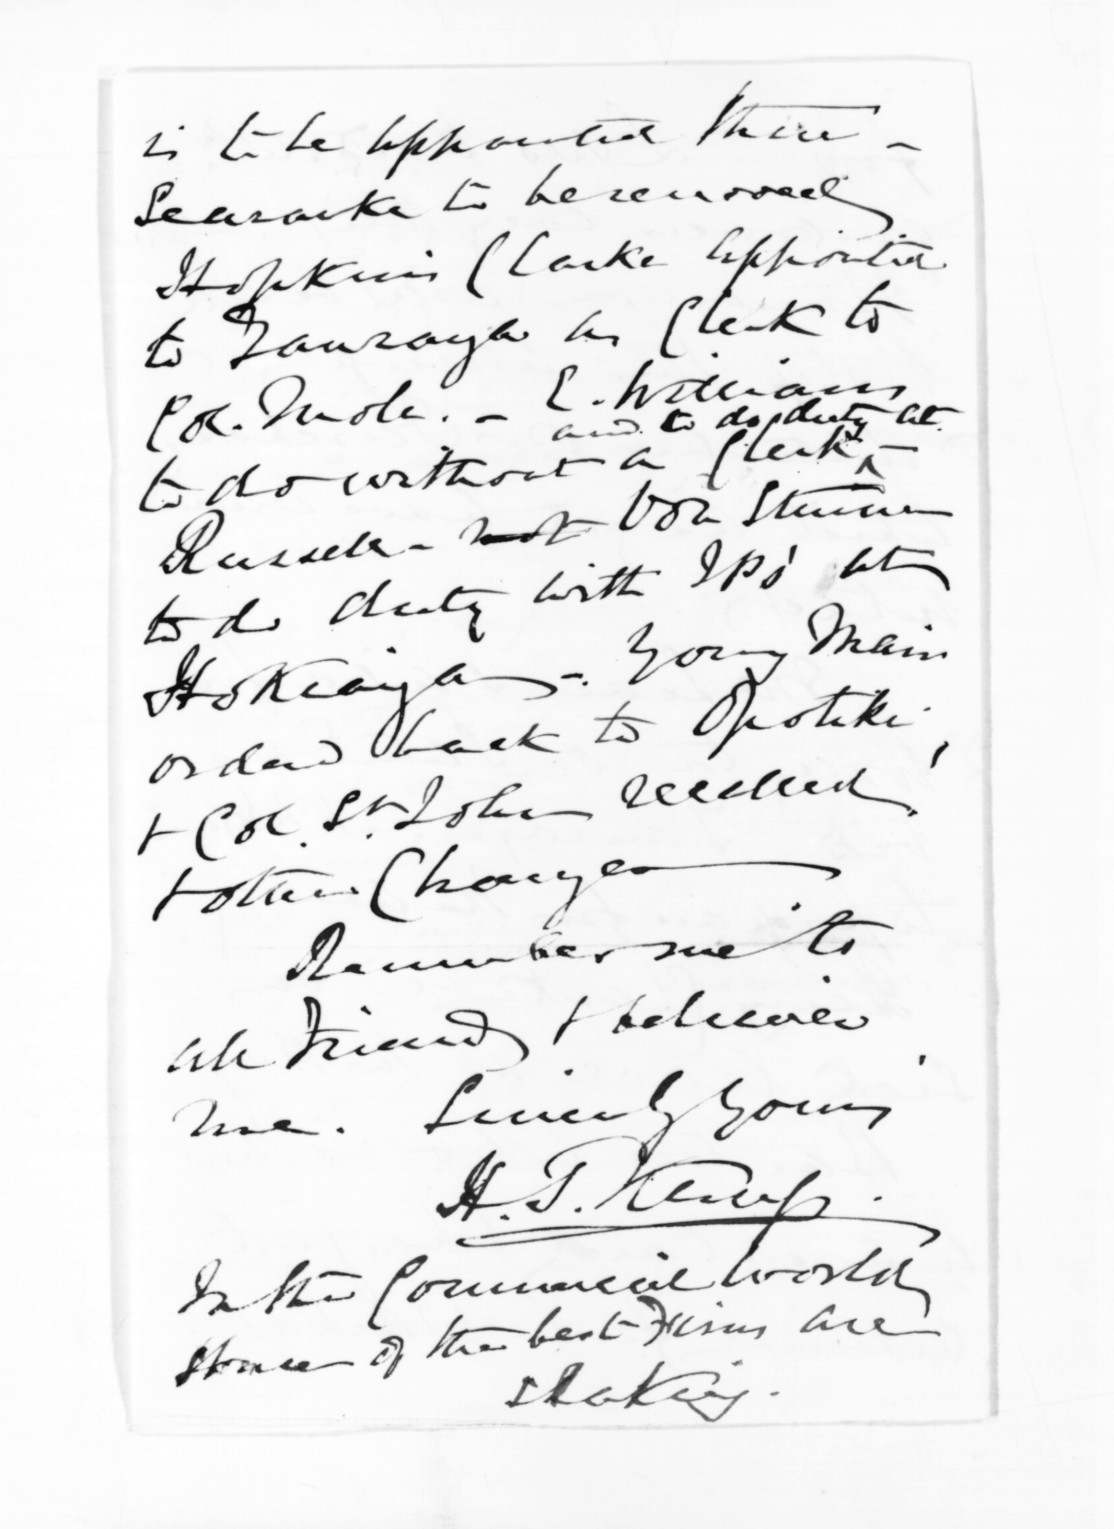 is to be appointed there -
Searancke to be removed
Hopkins Clarke appointed
to Tauranga as Clerk to
Col. Mole. - E. Williams
and to do duty at
to do without a Clerk ^ -
Russell - not Von Sturmer
to do duty with JPs' at
Hokianga -. Young Mair
ordered back to Opotiki,
+ Col. St. John recalled,
+ other Changes
Remember me to
all Friends + believe
me. Sincerely yours
H. T. Kemp.
In the Commercial World
some of the best Firms are
shaking.